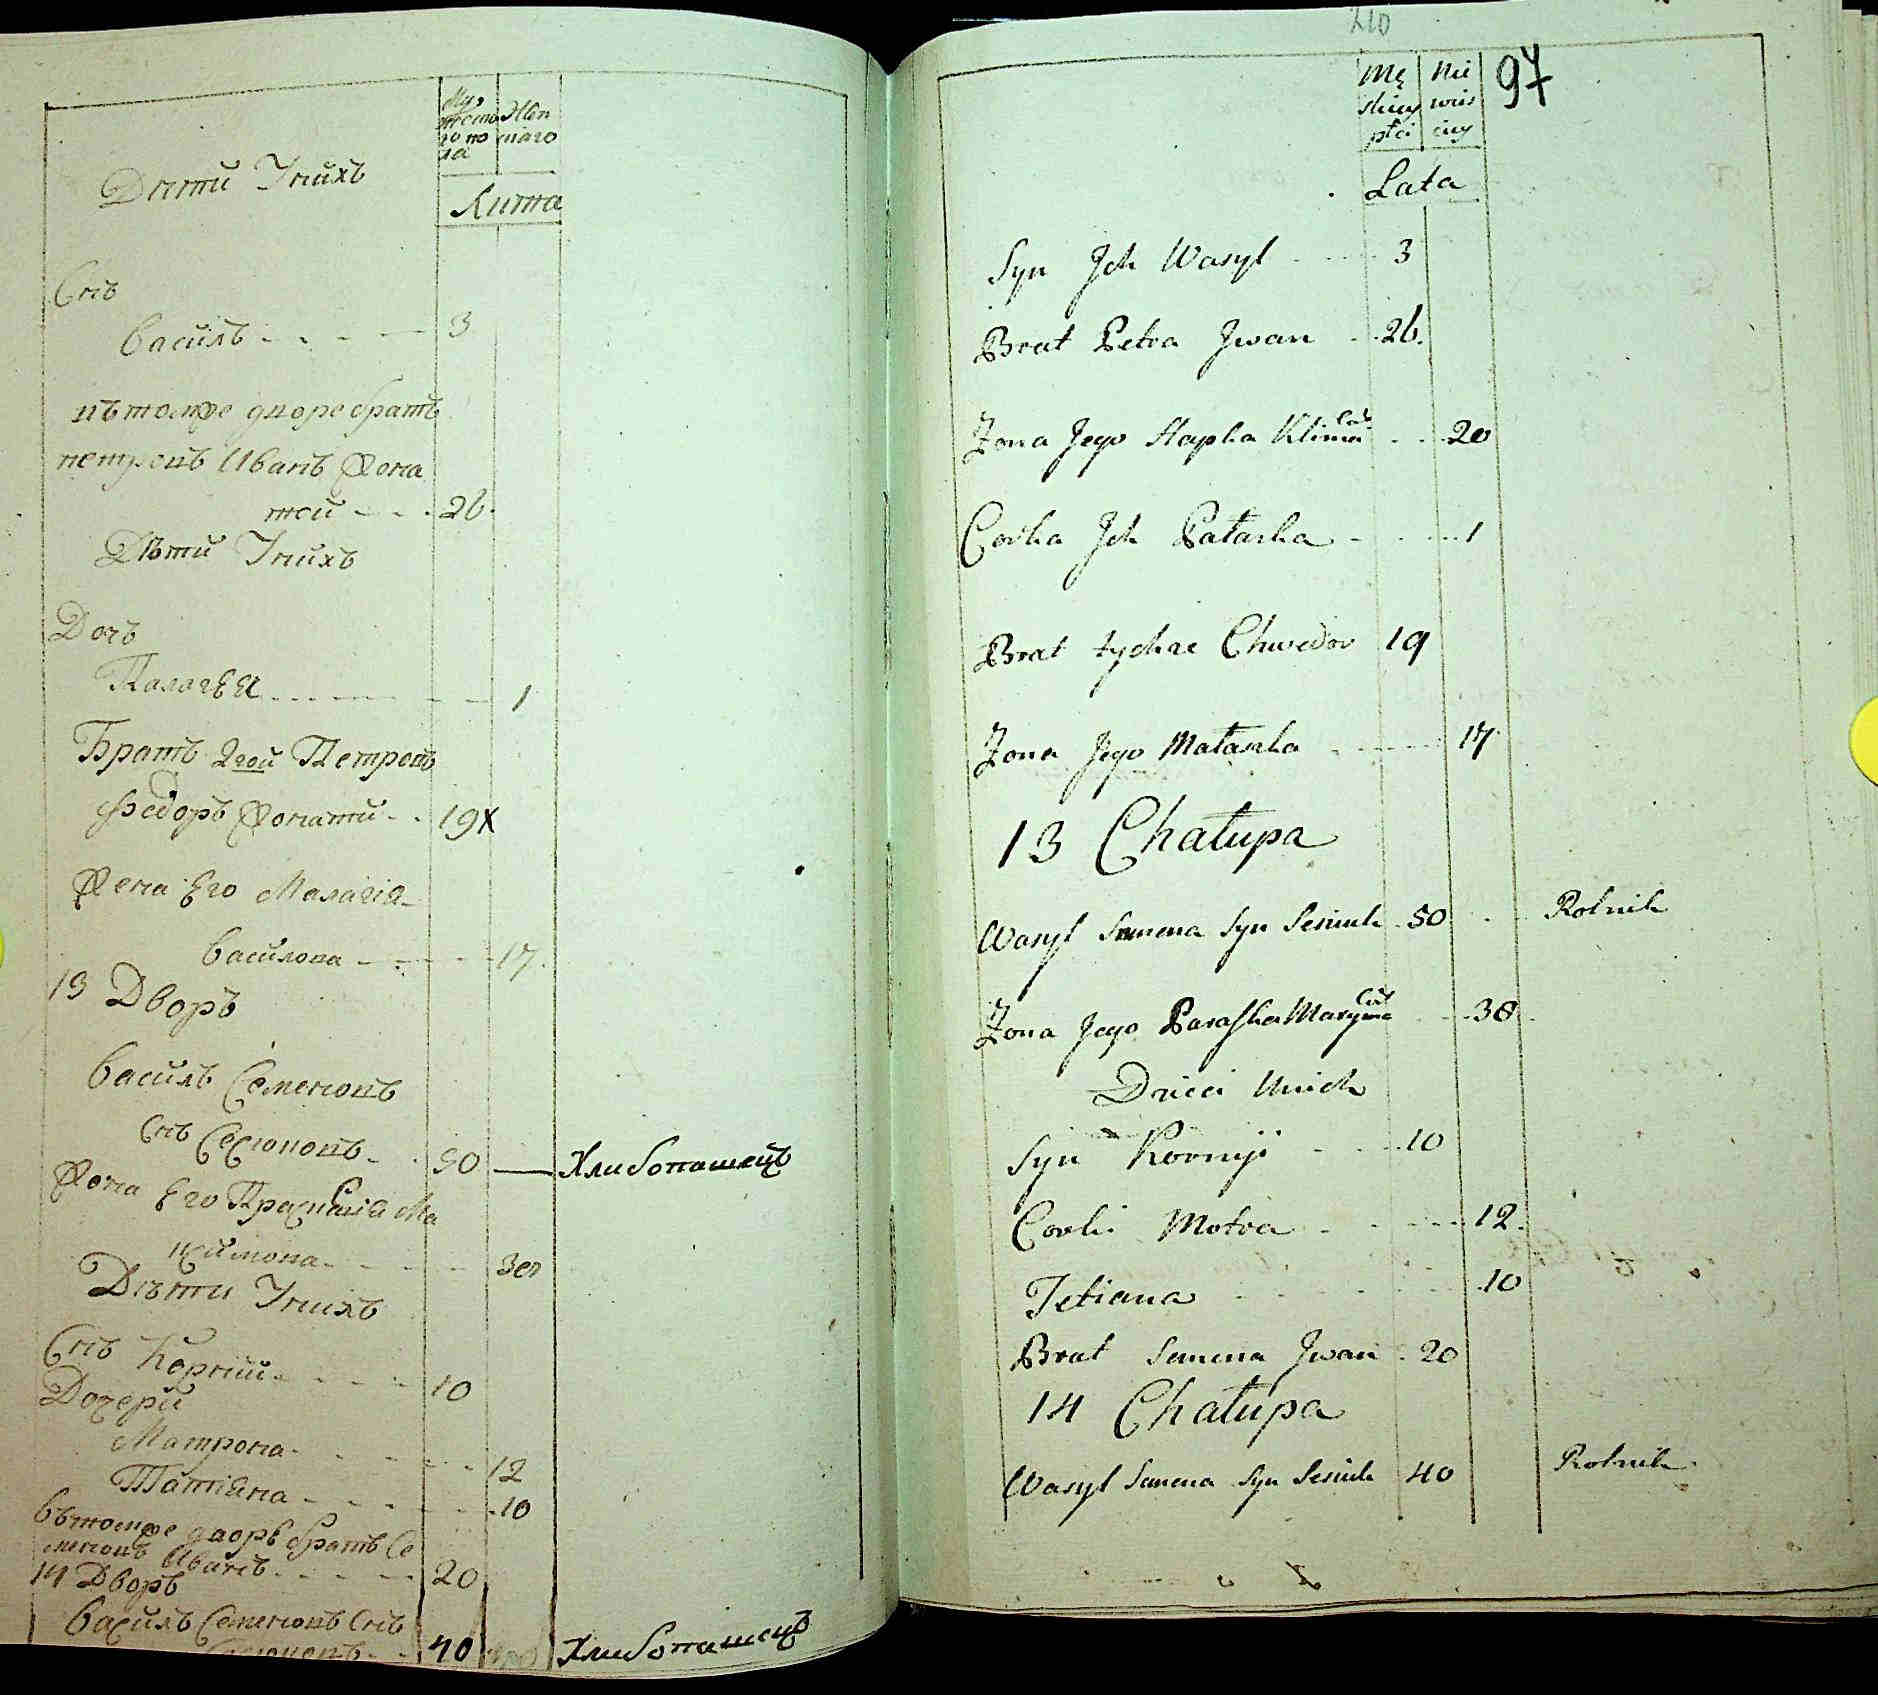 Дѣти Унихъ
Му
жеско
го по
ла
Жен
скаго
Лита
Снъ
Василь 3
Въ томже дворе братъ
петровъ Иванъ Жона
той 26
Дѣти Унихъ
Дочъ
Палагѣя 1
Братъ 2гой Петровъ
Федоръ Жонати 19 x
Жена Его Малагія
Василова 17
13 Дворъ
Василь Семеновъ
Снъ Сесюковъ 50 Хлибопашецъ
Жона Его Прасковія Ма
ксимова 38
Дѣти Унихъ
Снъ Корній 10
Дочери
Матрона 12
Татіяна 10
Вътомже дворѣ братъ Се
меновъ Иванъ 20
14 Дворъ
Василь Семеновъ Снъ
Сесюковъ 40 Хлибопашецъ
210
97
Mę
skiey
płci
Nie
wieś
ciey
Lata
Syn Jch Wasyl 3
Brat Petra Jwan 26.
Żona Jego Hapka Klima Cór. 20
Corka Jch Pałaska 1
Brat tychże Chwedor 19
Żona Jego Małaszka 17
13 Chałupa
Wasyl Semena Syn Sesiuk 50 Rolnik
Żona Jego Paraska Maxyma Cór 38
Dzieci Unich
Syn Korniji 10
Corki Motra 12.
Tetiana 10
Brat Semena Jwan 20
14 Chałupa
Wasyl Semena Syn Sesiuk 40 Rolnik